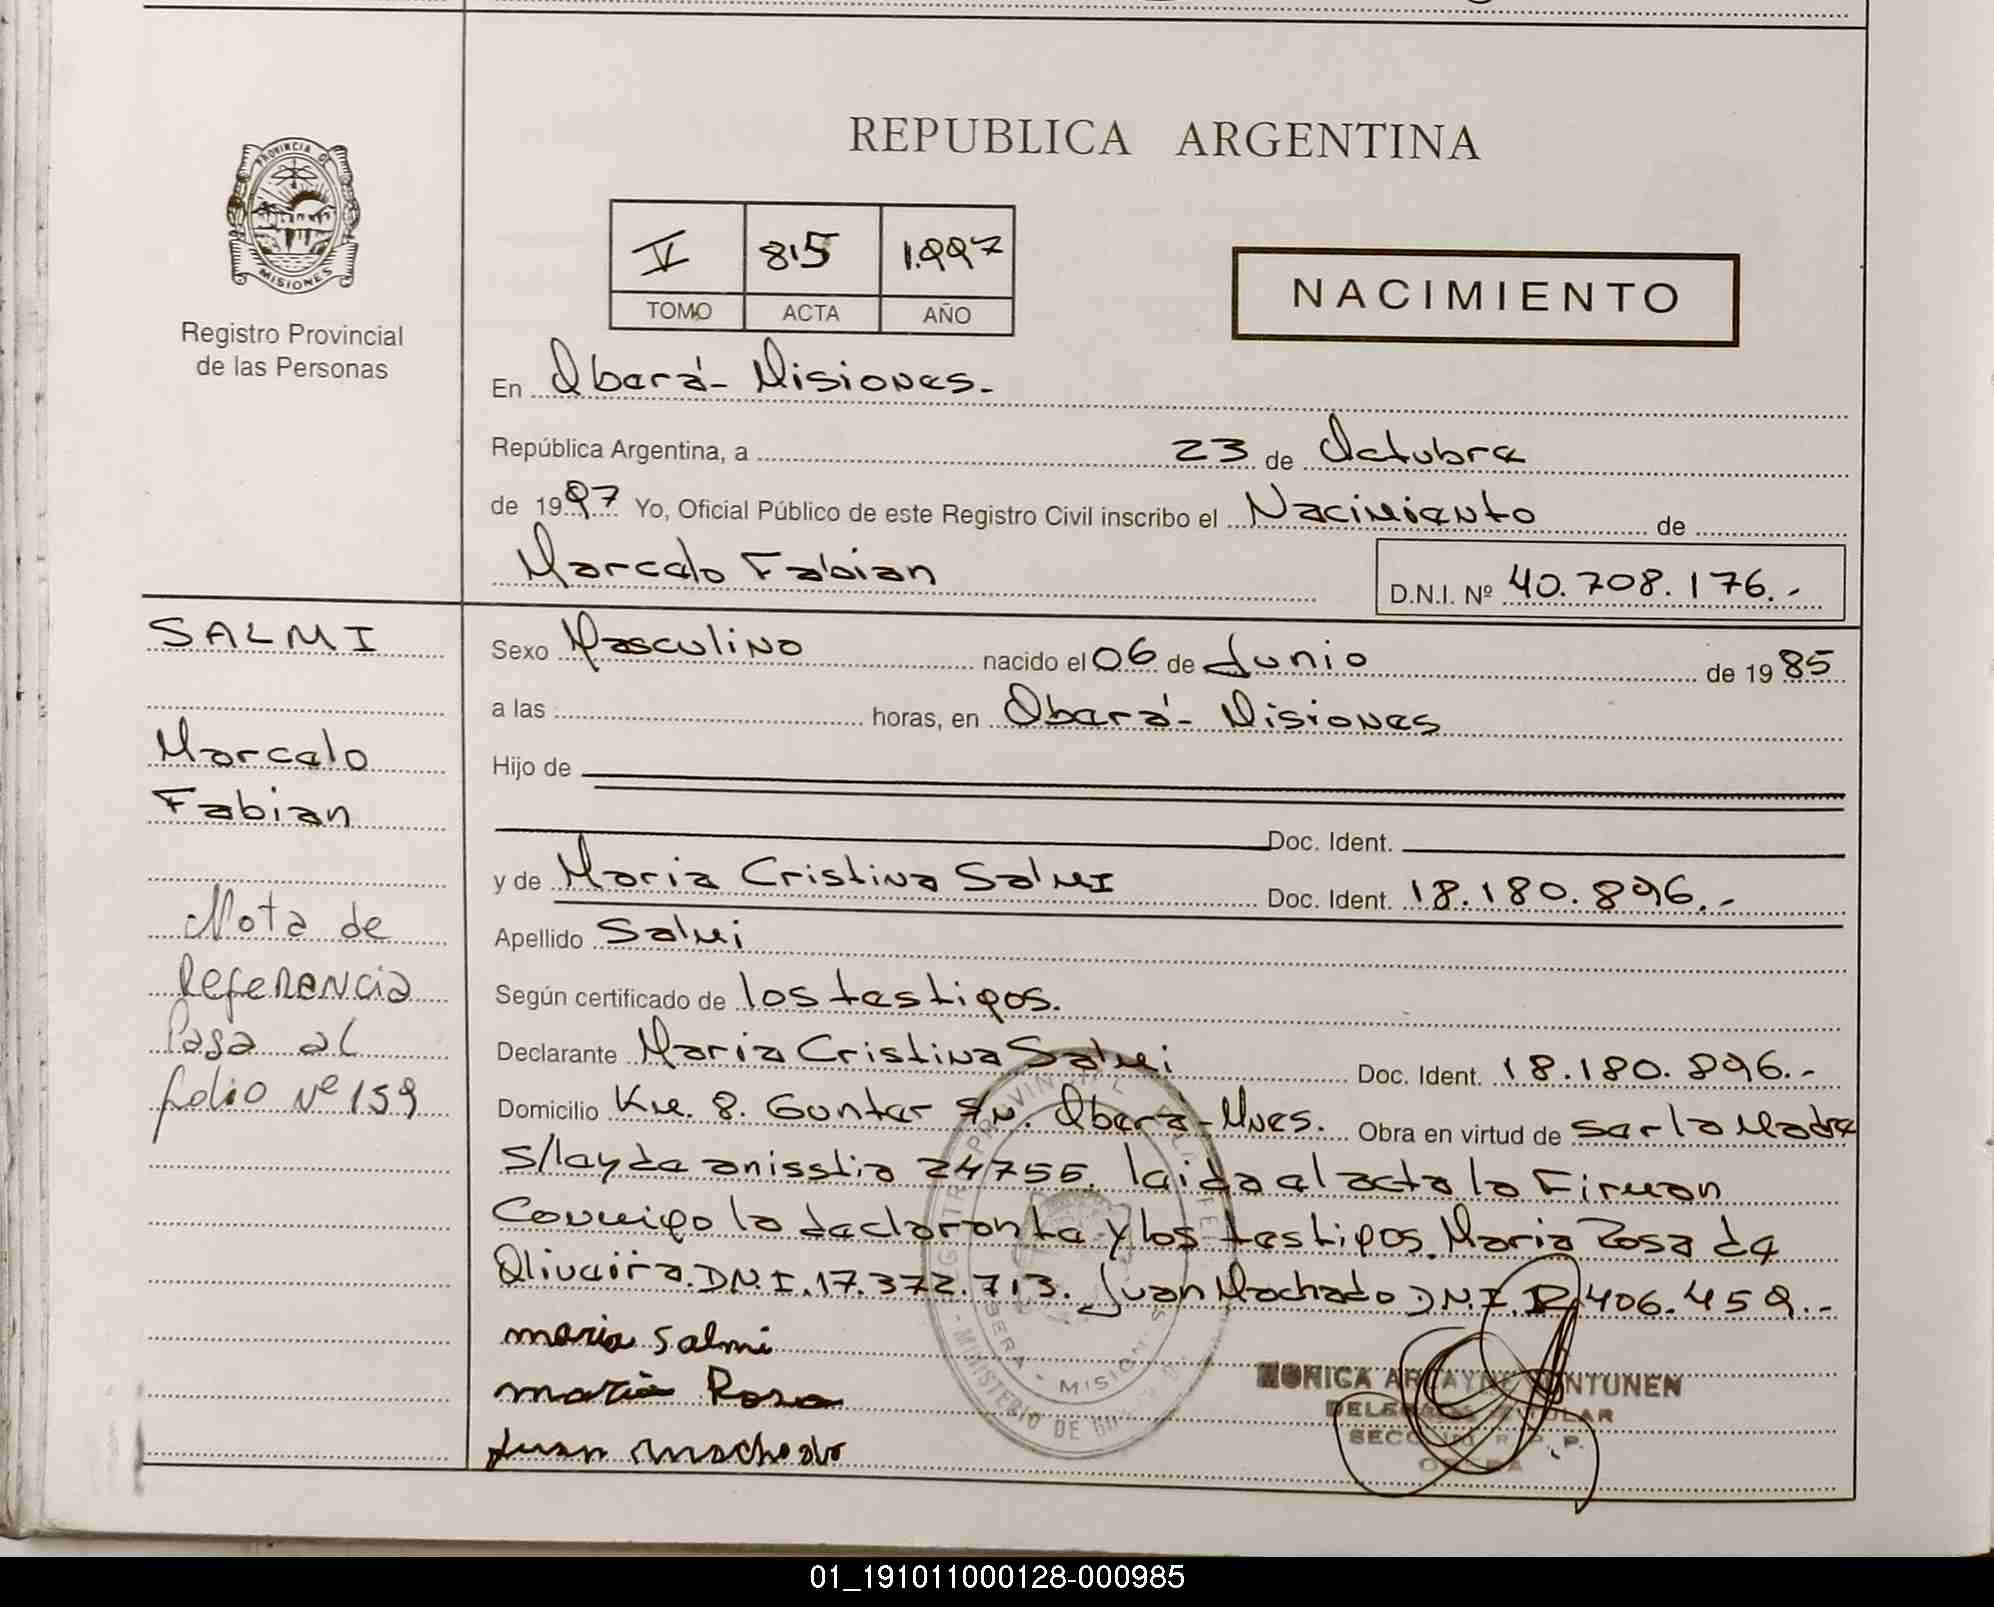 REPUBLICA ARGENTINA
PROVINCIA DE
MISIONES
Registro Provincial
de las Personas
V 815 1.997
TOMO ACTA AÑO
NACIMIENTO
En Oberá - Misiones.
República Argentina, a 23 de Octubre
de 1997 Yo, Oficial Público de este Registro Civil inscribo el Nacimiento de
Marcelo Fabian D.N.I. Nº 40.708.176.-
SALMI
Marcelo
Fabian
Nota de
Referencia
Pasa al
folio Nº 159
Sexo Masculino nacido el 06 de Junio de 1985
a las horas, en Oberá - Misiones
Hijo de
Doc. Ident.
y de Maria Cristina Salmi Doc. Ident. 18.180.896.-
Apellido Salmi
Según certificado de los testigos.
Declarante Maria Cristina Salmi Doc. Ident. 18.180.896.-
Domicilio Km. 8. Guntер S/N. Oberá - Mnes. Obra en virtud de ser la Madre
s/ley de anisstia 24755. leida el acta la Firman
Conmigo la declarante y los testigos. Maria Rosa de
Oliveira. D.N.I. 17.372.713. Juan Machado D.N.I. 406.459.-
maria Salmi
maria Rosa
Juan machado
MONICA
DELEGADA TITULAR
OBERA
MISIONES
MINISTERIO DE
01_191011000128-000985